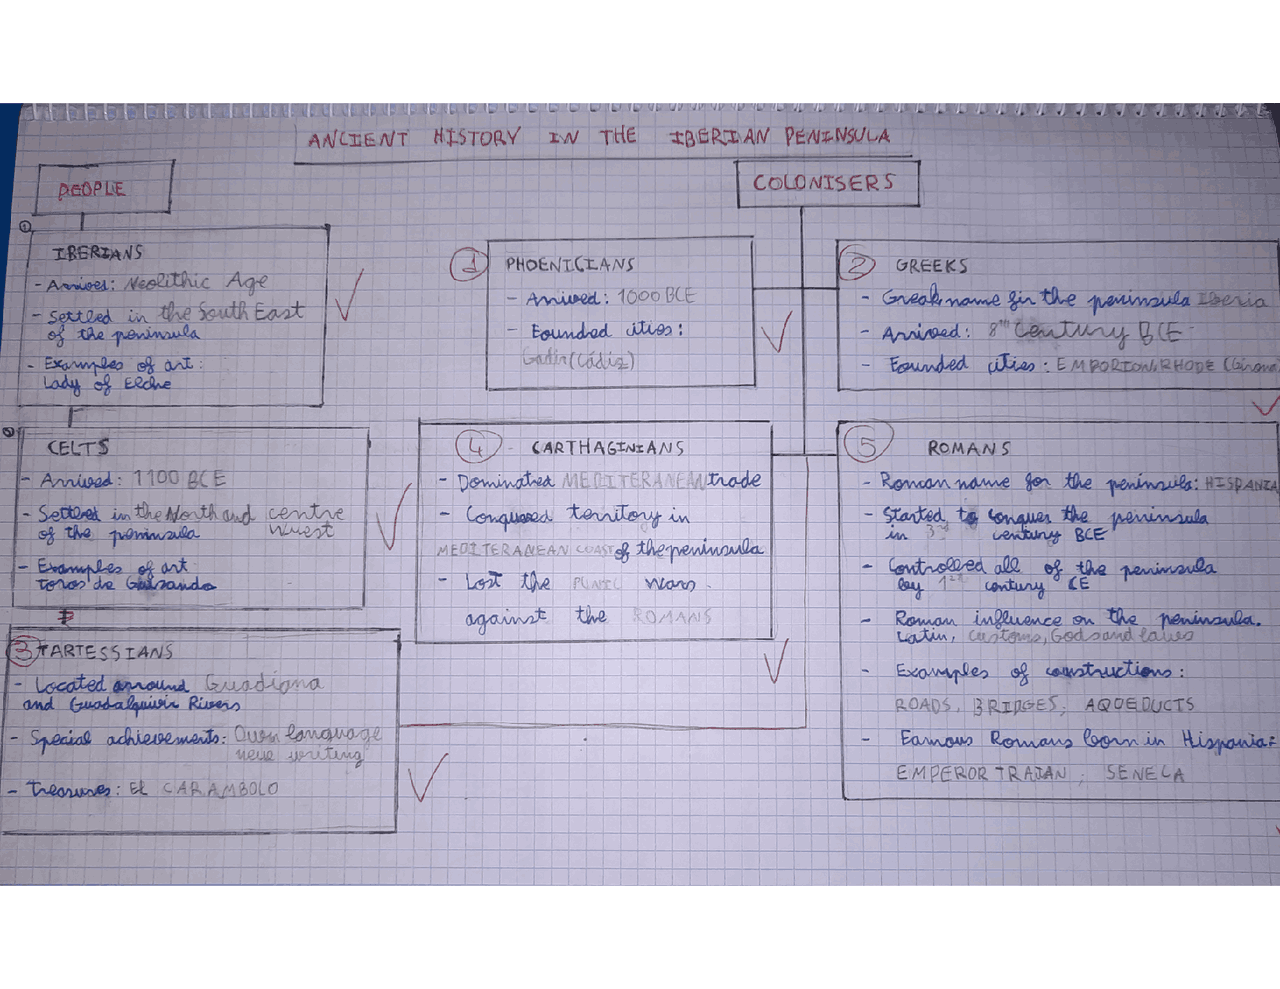 ANCIENT HISTORY IN THE IBERIAN PENINSULA
PEOPLE
COLONISERS
1
IBERIANS
- Arrived: Neolithic Age
- Settled in the South East
of the peninsula
- Examples of art:
Lady of Elche
1
PHOENICIANS
- Arrived: 1000 BCE
- Founded cities:
Gadir (Cádiz)
2
GREEKS
- Greek name for the peninsula Iberia
- Arrived: 8th Century BCE
- Founded cities: EMPORION, RHODE (Girona
CELTS
- Arrived: 1100 BCE
- Settled in the North and centre
of the peninsula west
- Examples of art
toros de Guisando
4
CARTHAGINIANS
- Dominated MEDITERANEAN trade
- Conquered territory in
MEDITERANEAN COAST of the peninsula
- Lost the PUNIC wars.
against the ROMANS
5
ROMANS
- Roman name for the peninsula: HISPANIA
- Started to conquer the peninsula
in 3rd century BCE
- Controlled all of the peninsula
by 1st century CE
- Roman influence on the peninsula.
Latin, customs, Gods and laws
- Examples of constructions:
ROADS, BRIDGES, AQDEDUCTS
- Famous Romans born in Hispania:
EMPEROR TRAJAN, SENECA
3
TARTESSIANS
- Located arround Guadiana
and Guadalquivir Rivers
- Special achievements: Own language
writing
- Treasures: El CARAMBOLO